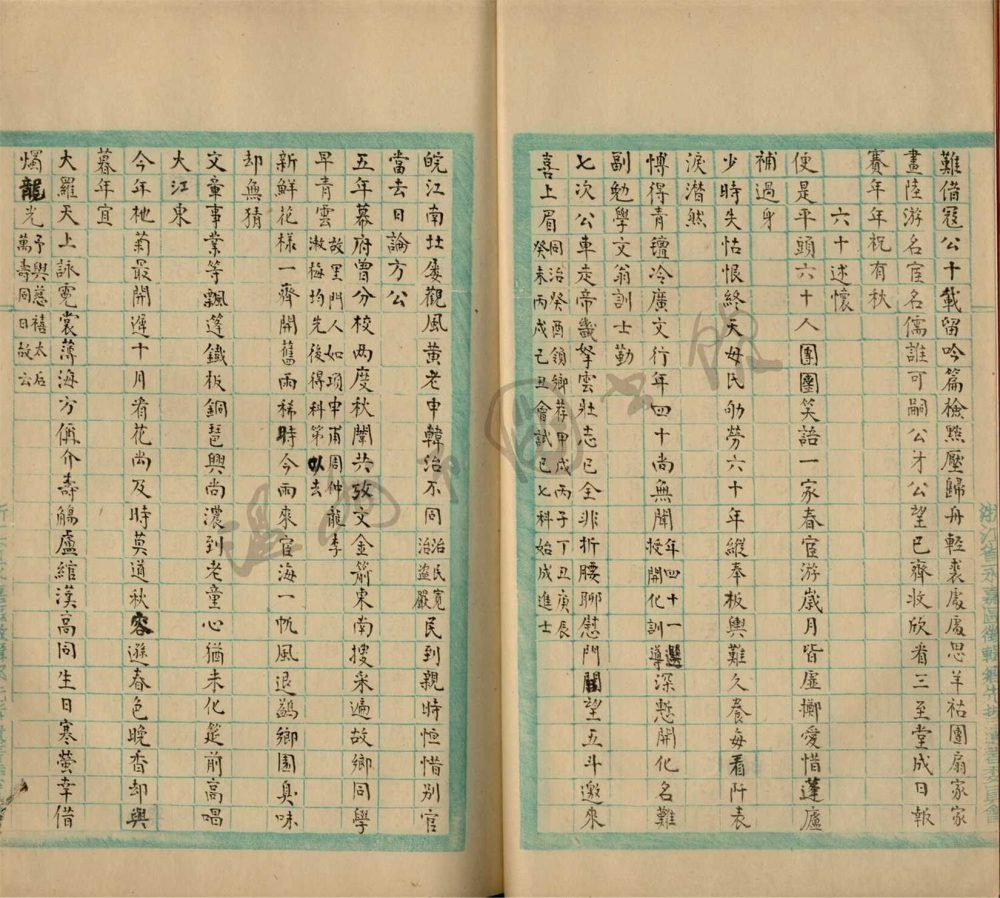 難借寇公十載留吟篇檢點壓歸舟輕裘處處思羊祜團扇家家
畫陸游名宦名儒誰可嗣公才公望已齊收欣看三至堂成日報
賽年年祝有秋
六十述懷
便是平頭六十人團團笑語一家春宦游歲月皆虛擲愛惜蓬廬
補過身
少時失怙恨終天母氏劬勞六十年縱奉板輿難久養每看阡表
淚潸然
博得青氊冷廣文行年四十尚無聞年四十一選授開化訓導深慙開化名難
副勉學文翁訓士勤
七次公車走帝畿拏雲壯志已全非折腰聊慰門閭望五斗邀來
喜上眉同治癸酉領鄉荐甲戌丙子丁丑庚辰癸未丙戌己丑會試已七科始成進士
皖江南北屢觀風黃老申韓治不同治民寬治盜嚴民到親時恒惜別官
當去日論方公
五年幕府曾分校两度秋闈共攷文金箭東南搜采遍故鄉同學
早青雲故里門人如項申甫周仲龍李漱梅均先後得科第以去
新鮮花樣一齊開舊雨稀時今雨來宦海一帆風退鷁鄉園臭味
却無猜
文章事業等飄蓬鐵板銅琶興尚濃到老童心猶未化筵前高唱
大江東
今年杝菊最開遲十月看花尚及時莫道秋容遜春色晚香却與
暮年宜
大羅天上詠霓裳薄海方偁介壽觴盧綰漢高同生日寒螢幸借
燭龍光予與慈禧太后萬壽同日故云
溫州市圖書館